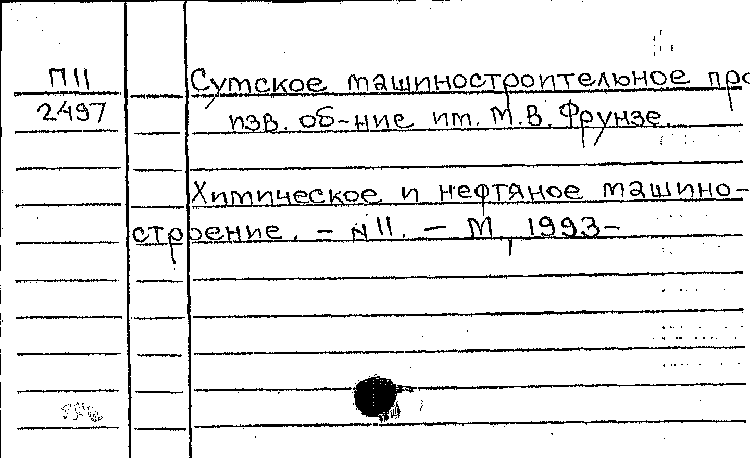 П11
2497
Сумское машиностроительное про
изв. об-ние им. М.В. Фрунзе.
Химическое и нефтяное машино-
строение. - N11. - М, 1993-